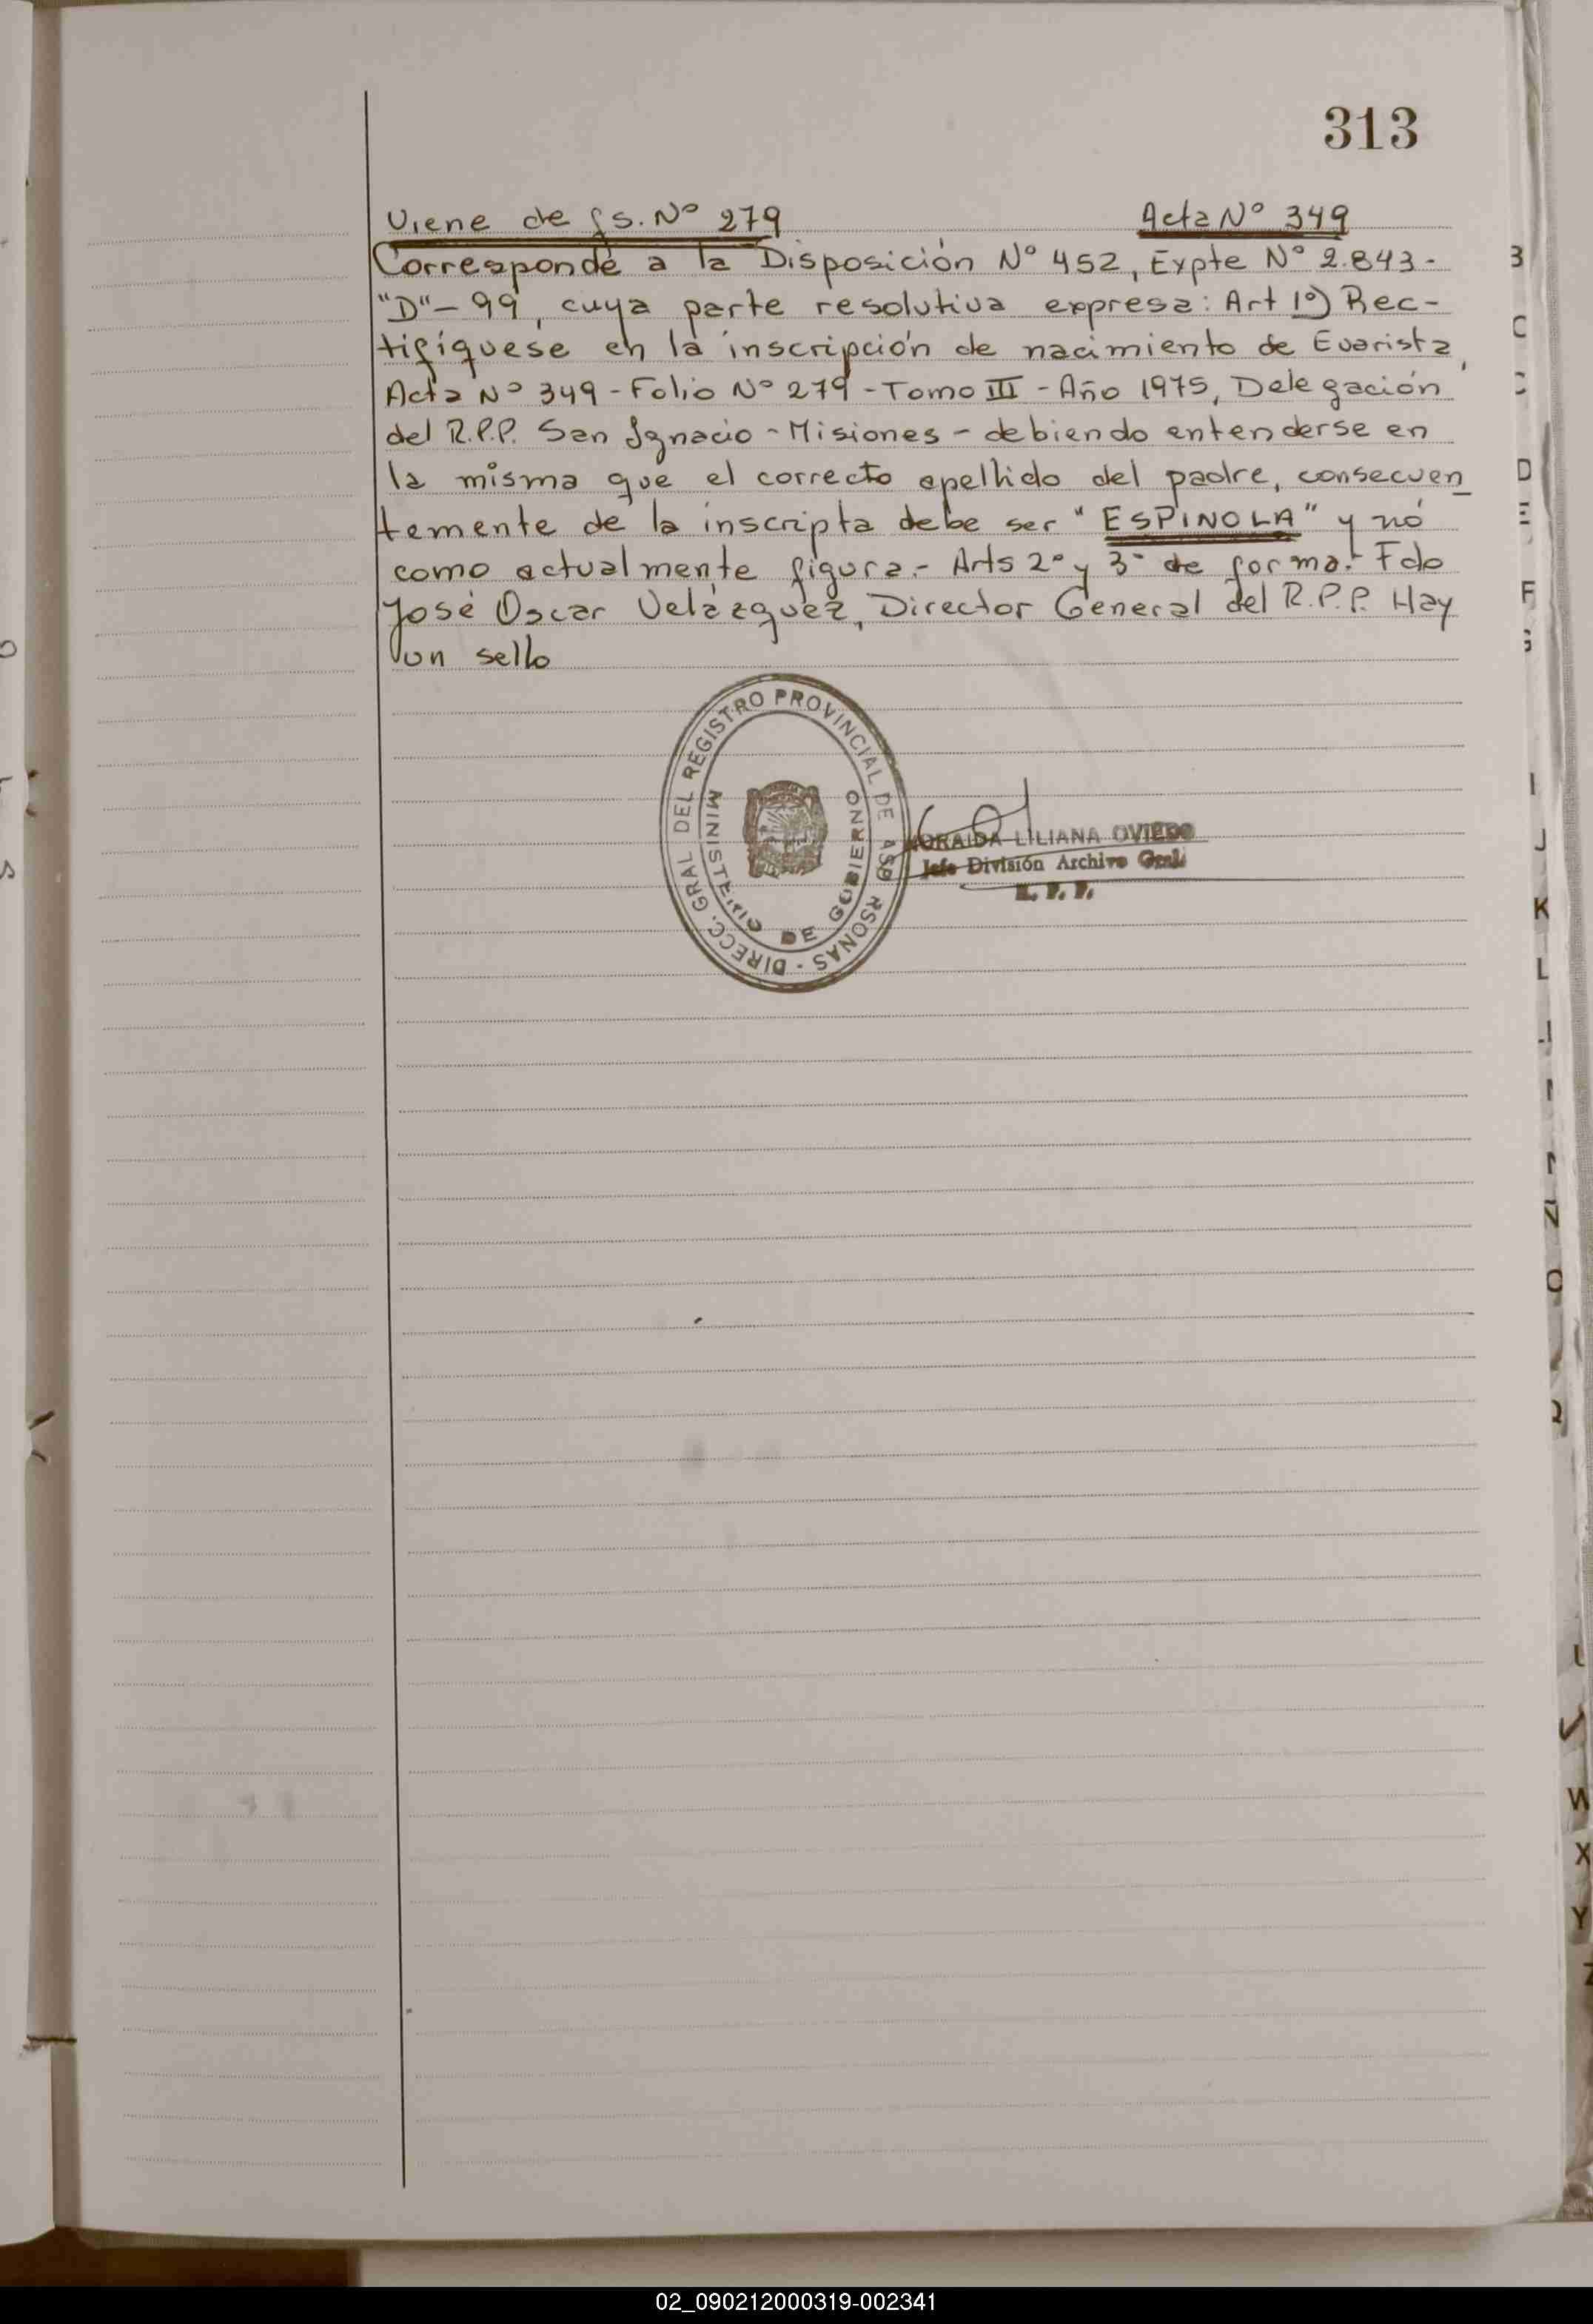 313
Viene de fs. Nº 279 Acta Nº 349
Corresponde a la Disposición Nº 452, Expte Nº 2.843-
"D"-99, cuya parte resolutiva expresa: Art 1º) Rec-
tifíquese en la inscripción de nacimiento de Evarista,
Acta Nº 349 - Folio Nº 279 - Tomo III - Año 1975, Delegación
del R.P.P. San Ignacio - Misiones - debiendo entenderse en
la misma que el correcto apellido del padre, consecuen
temente de la inscripta debe ser "ESPINOLA" y nó
como actualmente figura.- Arts 2º y 3º de forma.- Fdo
José Oscar Velázquez, Director General del R.P.P. Hay
un sello
DIRECC. GRAL DEL REGISTRO PROVINCIAL DE
MINISTERIO DE GOBIERNO
LILIANA OVIEDO
Jefe División Archivo Gral.
R. P. P.
B
C
D
E
F
G
I
J
K
L
N
O
W
X
Y
02_090212000319-002341